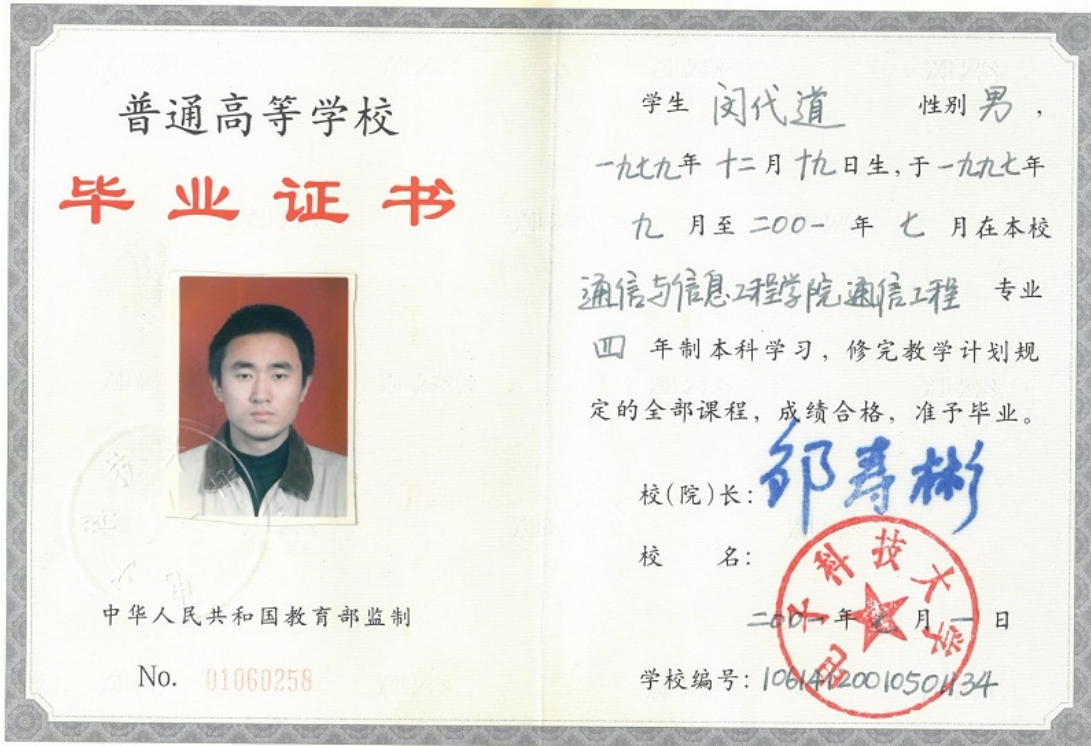 普通高等学校
毕业证书
中华人民共和国教育部监制
No. 01060258
学生 闵代道 性别 男，
一九七九年 十二月 十九日生，于一九九七年
九 月至 二〇〇一 年 七 月在本校
通信与信息工程学院通信工程 专业
四 年制本科学习，修完教学计划规
定的全部课程，成绩合格，准予毕业。
校(院)长：邹寿彬
校 名：
科技大学
二〇〇一年 七 月 一 日
学校编号：